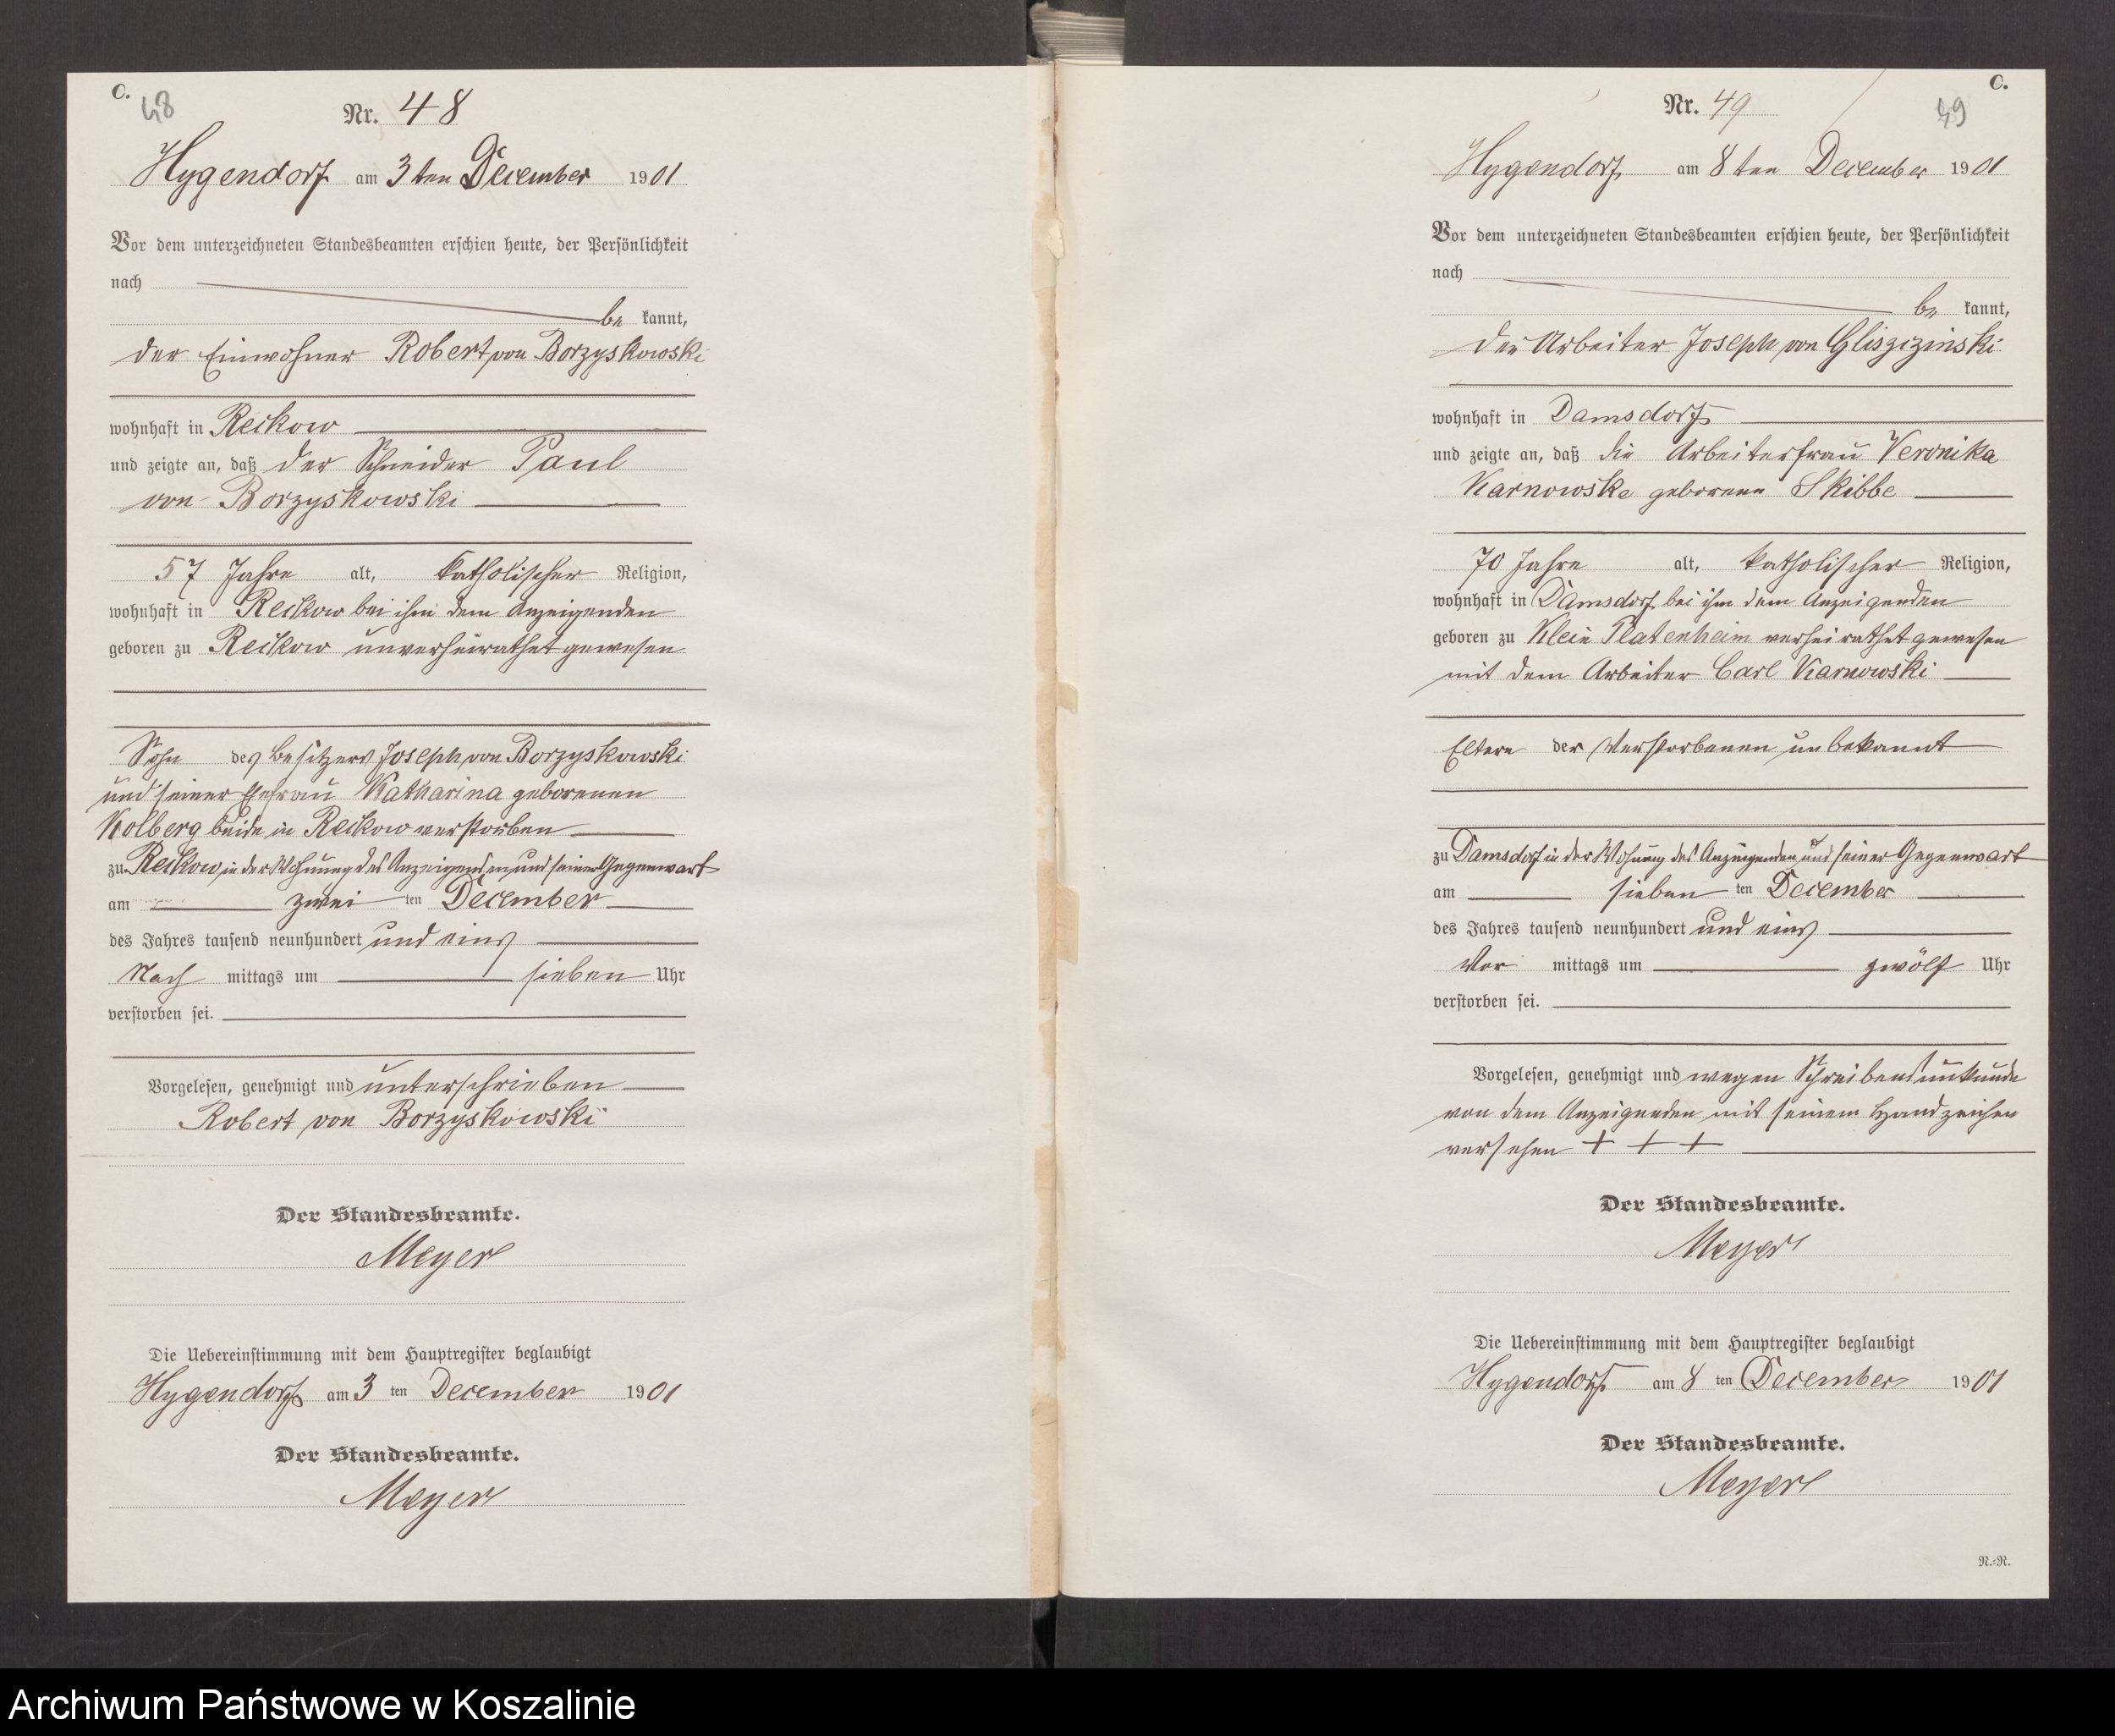 C.
48
Nr. 48
Hygendorf am 3ten December 1901
Vor dem unterzeichneten Standesbeamten erschien heute, der Persönlichkeit
nach
be kannt,
der Einwohner Robert von Borzyskowski
wohnhaft in Reckow
und zeigte an, daß der Schneider Paul
von Borzyskowski
57 Jahre alt, katholischer Religion,
wohnhaft in Reckow bei ihm dem Anzeigenden
geboren zu Reckow unverheirathet gewesen
Sohn des Besitzers Joseph von Borzyskowski
und seiner Ehefrau Katharina geborenen
Kolberg beide in Reckow verstorben
zu Reckow in der Wohnung des Anzeigenden, und seiner Gegenwart
am zwei ten December
des Jahres tausend neunhundert und eins
Nach mittags um sieben Uhr
verstorben sei.
Vorgelesen, genehmigt und unterschrieben
Robert von Borzyskowski
Der Standesbeamte.
Meyer
Die Uebereinstimmung mit dem Hauptregister beglaubigt
Hygendorf am 3 ten December 1901
Der Standesbeamte.
Meyer
C.
49
Nr. 49
Hygendorf, am 8ten December 1901
Vor dem unterzeichneten Standesbeamten erschien heute, der Persönlichkeit
nach
be kannt,
der Arbeiter Joseph von Gliszizinski
wohnhaft in Damsdorf
und zeigte an, daß die Arbeiterfrau Veronika
Karnowske geborene Skibbe
70 Jahre alt, katholischer Religion,
wohnhaft in Damsdorf bei ihm dem Anzeigenden
geboren zu Klein Platenheim verheirathet gewesen
mit dem Arbeiter Carl Karnowski
Eltern der Verstorbenen unbekannt
zu Damsdorf in der Wohnung des Anzeigenden und seiner Gegenwart
am sieben ten December
des Jahres tausend neunhundert und eins
Vor mittags um zwölf Uhr
verstorben sei.
Vorgelesen, genehmigt und wegen Schreibensunkunde
von dem Anzeigenden mit seinem Handzeichen
versehen + + +
Der Standesbeamte.
Meyer
Die Uebereinstimmung mit dem Hauptregister beglaubigt
Hygendorf am 8 ten December 1901
Der Standesbeamte.
Meyer
N.-N.
Archiwum Państwowe w Koszalinie